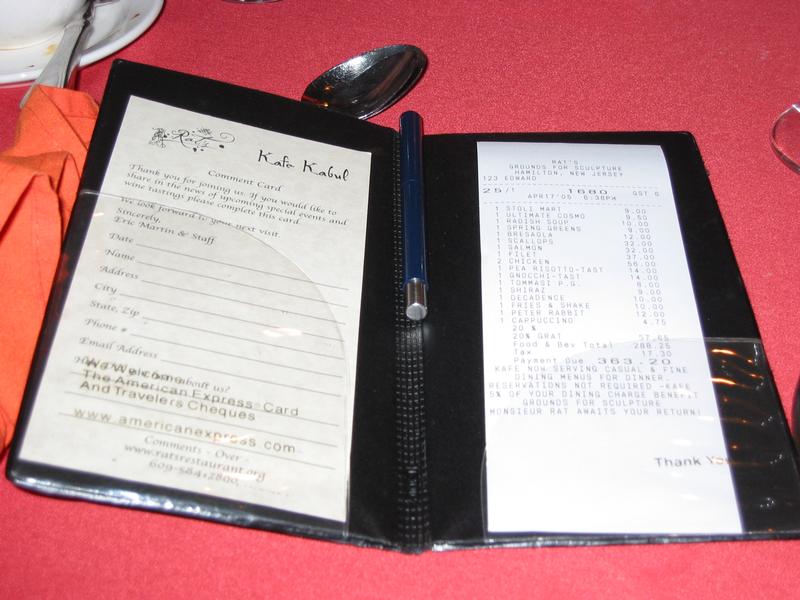 Rat's
Kafe Kabul
Comment Card
Thank you for joining us. If you would like to
share in the news of upcoming special events and
wine tastings please complete this card.
We look forward to your next visit.
Sincerely,
Eric Martin & Staff
Date
Name
Address
City
State, Zip
Phone #
Email Address
about us?
We Welcome
The American Express Card
And Travelers Cheques
www.americanexpress.com
Comments - Over -
www.ratsrestaurant.org
609-584-7800
RAT'S
GROUNDS FOR SCULPTURE
HAMILTON, NEW JERSEY
123 EDWARD
25/1 1680 GST 6
APR17'05 6:38PM
1 STOLI MART 9.00
1 ULTIMATE COSMO 9.50
1 RADISH SOUP 10.00
1 SPRING GREENS 9.00
1 BRESAOLA 12.00
1 SCALLOPS 32.00
1 SALMON 32.00
1 FILET 37.00
2 CHICKEN 56.00
1 PEA RISOTTO-TAST 14.00
1 GNOCCHI-TAST 14.00
1 TOMMASI P.G. 8.00
1 SHIRAZ 9.00
1 DECADENCE 10.00
1 FRIES & SHAKE 10.00
1 PETER RABBIT 12.00
1 CAPPUCCINO 4.75
20 %
20% GRAT 57.65
Food & Bev Total 288.25
Tax 17.30
Payment Due 363.20
KAFE NOW SERVING CASUAL & FINE
DINING MENUS FOR DINNER.
RESERVATIONS NOT REQUIRED -KAFE
5% OF YOUR DINING CHARGE BENEFIT
GROUNDS FOR SCULPTURE
MONSIEUR RAT AWAITS YOUR RETURN!
Thank You